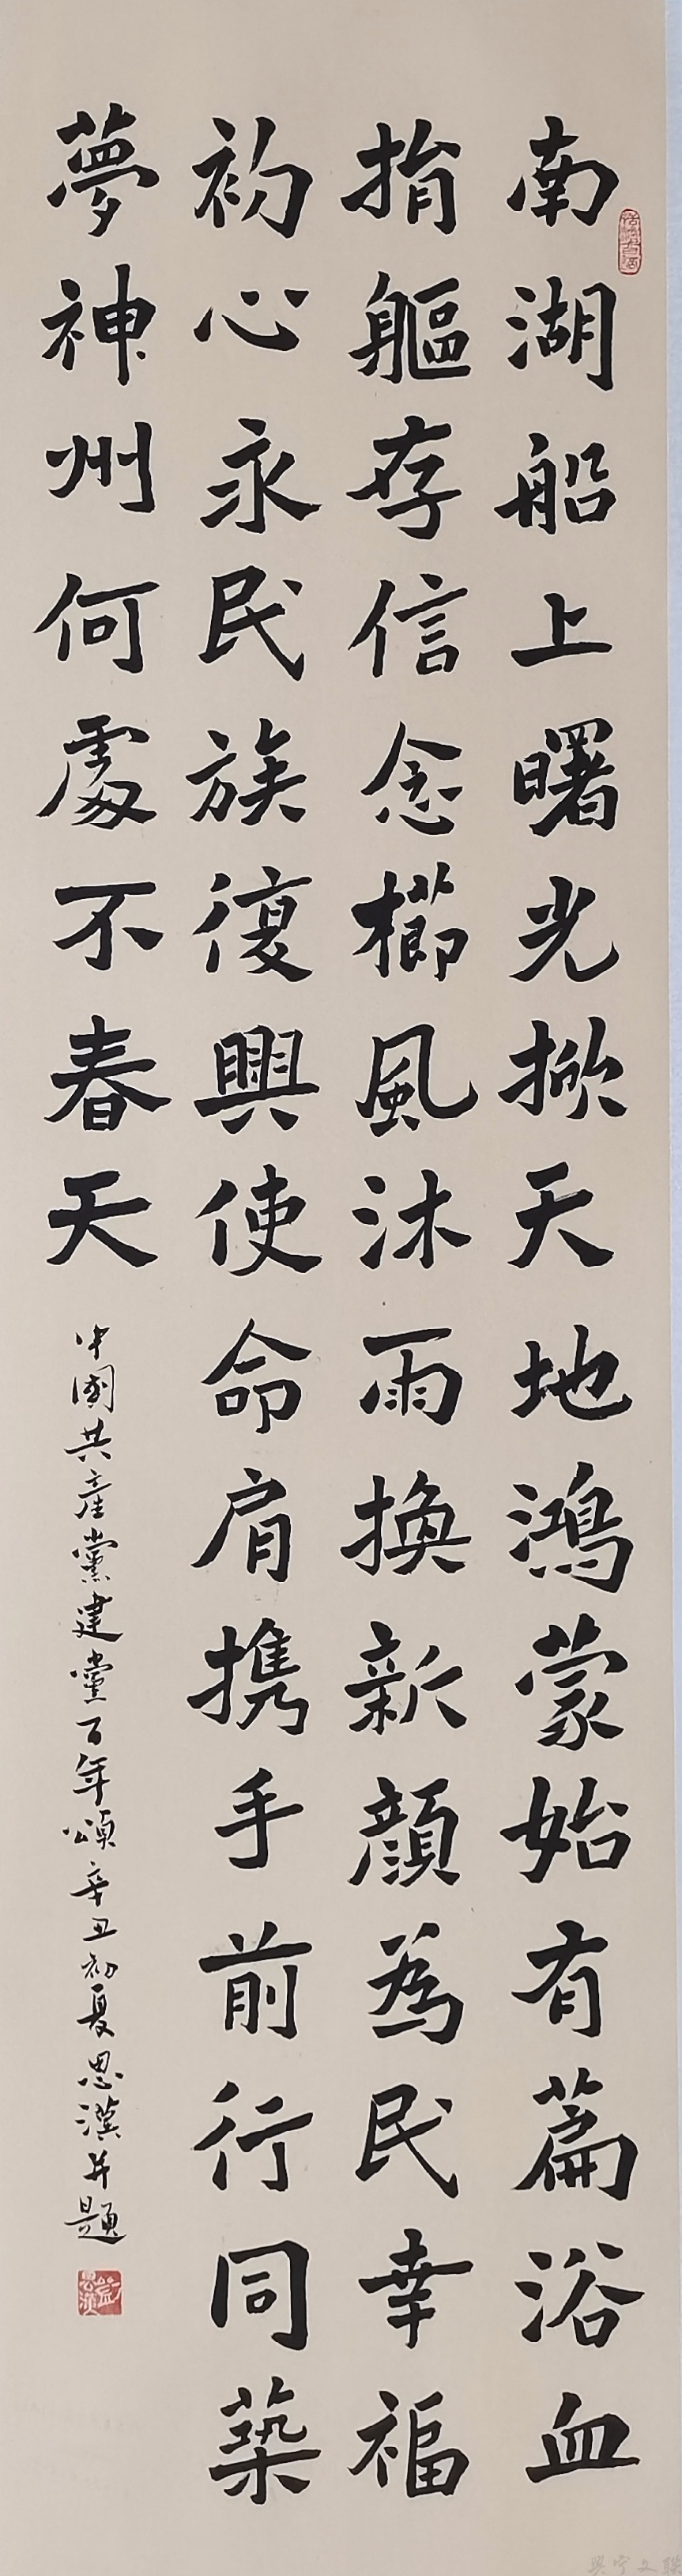 南湖船上曙光掀天地鴻蒙始有篇浴血
捐軀存信念櫛風沐雨換新顏為民幸福
初心永民族復興使命肩携手前行同築
夢神州何處不春天
中國共産黨建黨百年頌辛丑初夏思漢并題